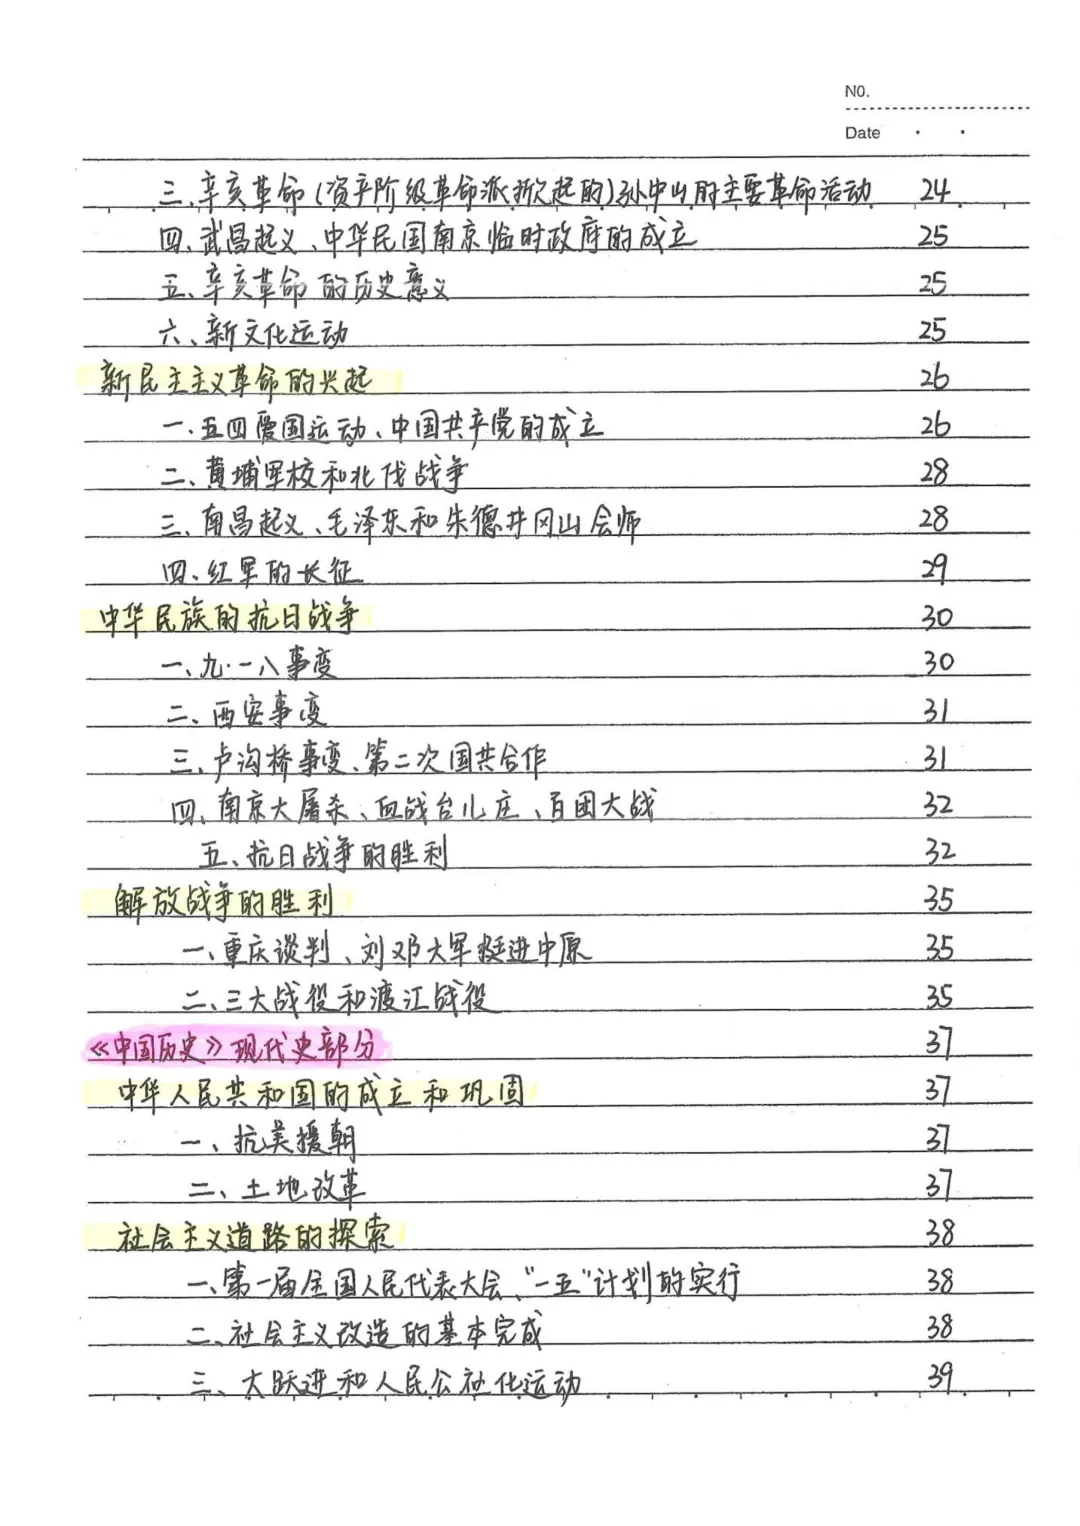 NO.
Date
三、辛亥革命(资产阶级革命派掀起的)孙中山的主要革命活动 24
四、武昌起义、中华民国南京临时政府的成立 25
五、辛亥革命的历史意义 25
六、新文化运动 25
新民主主义革命的兴起 26
一.五四爱国运动、中国共产党的成立 26
二、黄埔军校和北伐战争 28
三、南昌起义、毛泽东和朱德井冈山会师 28
四、红军的长征 29
中华民族的抗日战争 30
一、九·一八事变 30
二、西安事变 31
三、卢沟桥事变、第二次国共合作 31
四、南京大屠杀、血战台儿庄、百团大战 32
五、抗日战争的胜利 32
解放战争的胜利 35
一、重庆谈判、刘邓大军挺进中原 35
二、三大战役和渡江战役 35
《中国历史》现代史部分 37
中华人民共和国的成立和巩固 37
一、抗美援朝 37
二、土地改革 37
社会主义道路的探索 38
一、第一届全国人民代表大会、"一五"计划的实行 38
二、社会主义改造的基本完成 38
三、大跃进和人民公社化运动 39